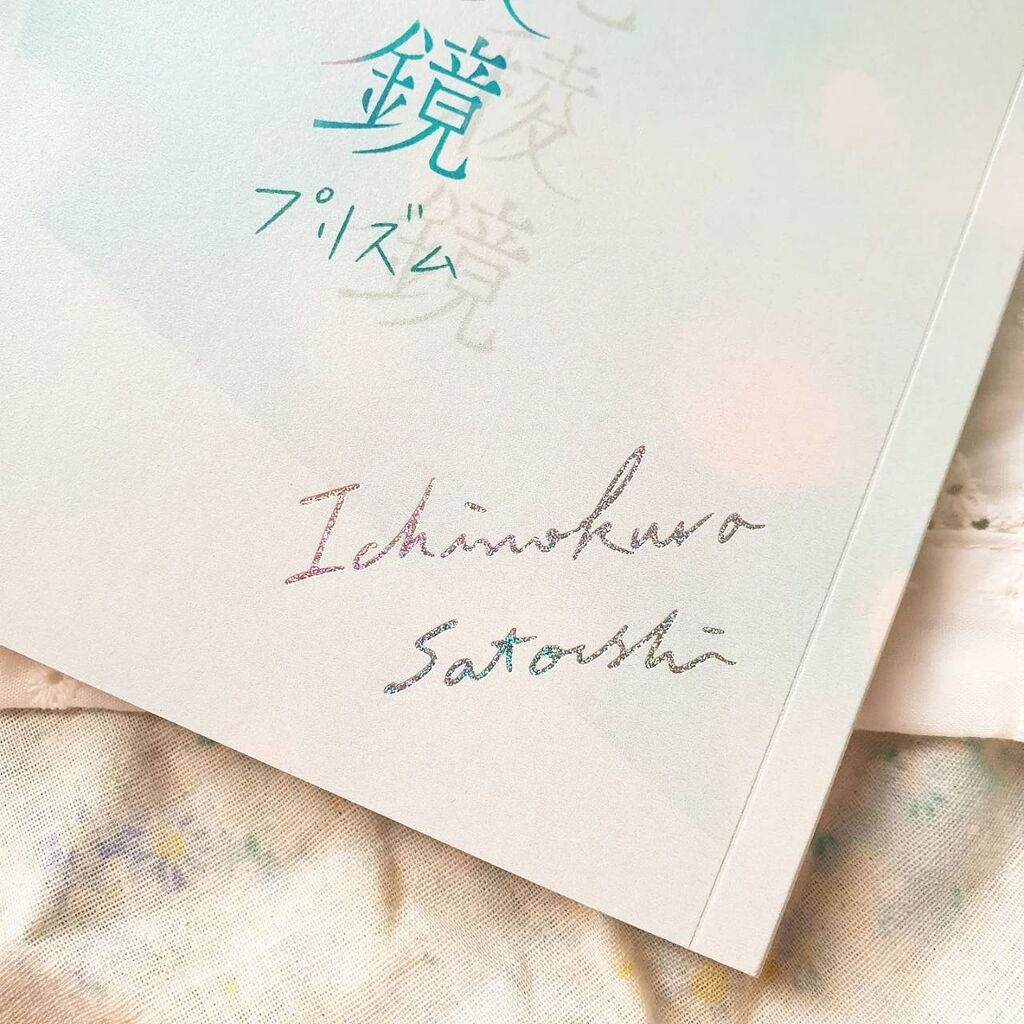 鏡
プリズム
綾
鏡
Ichinokura
Satoshi